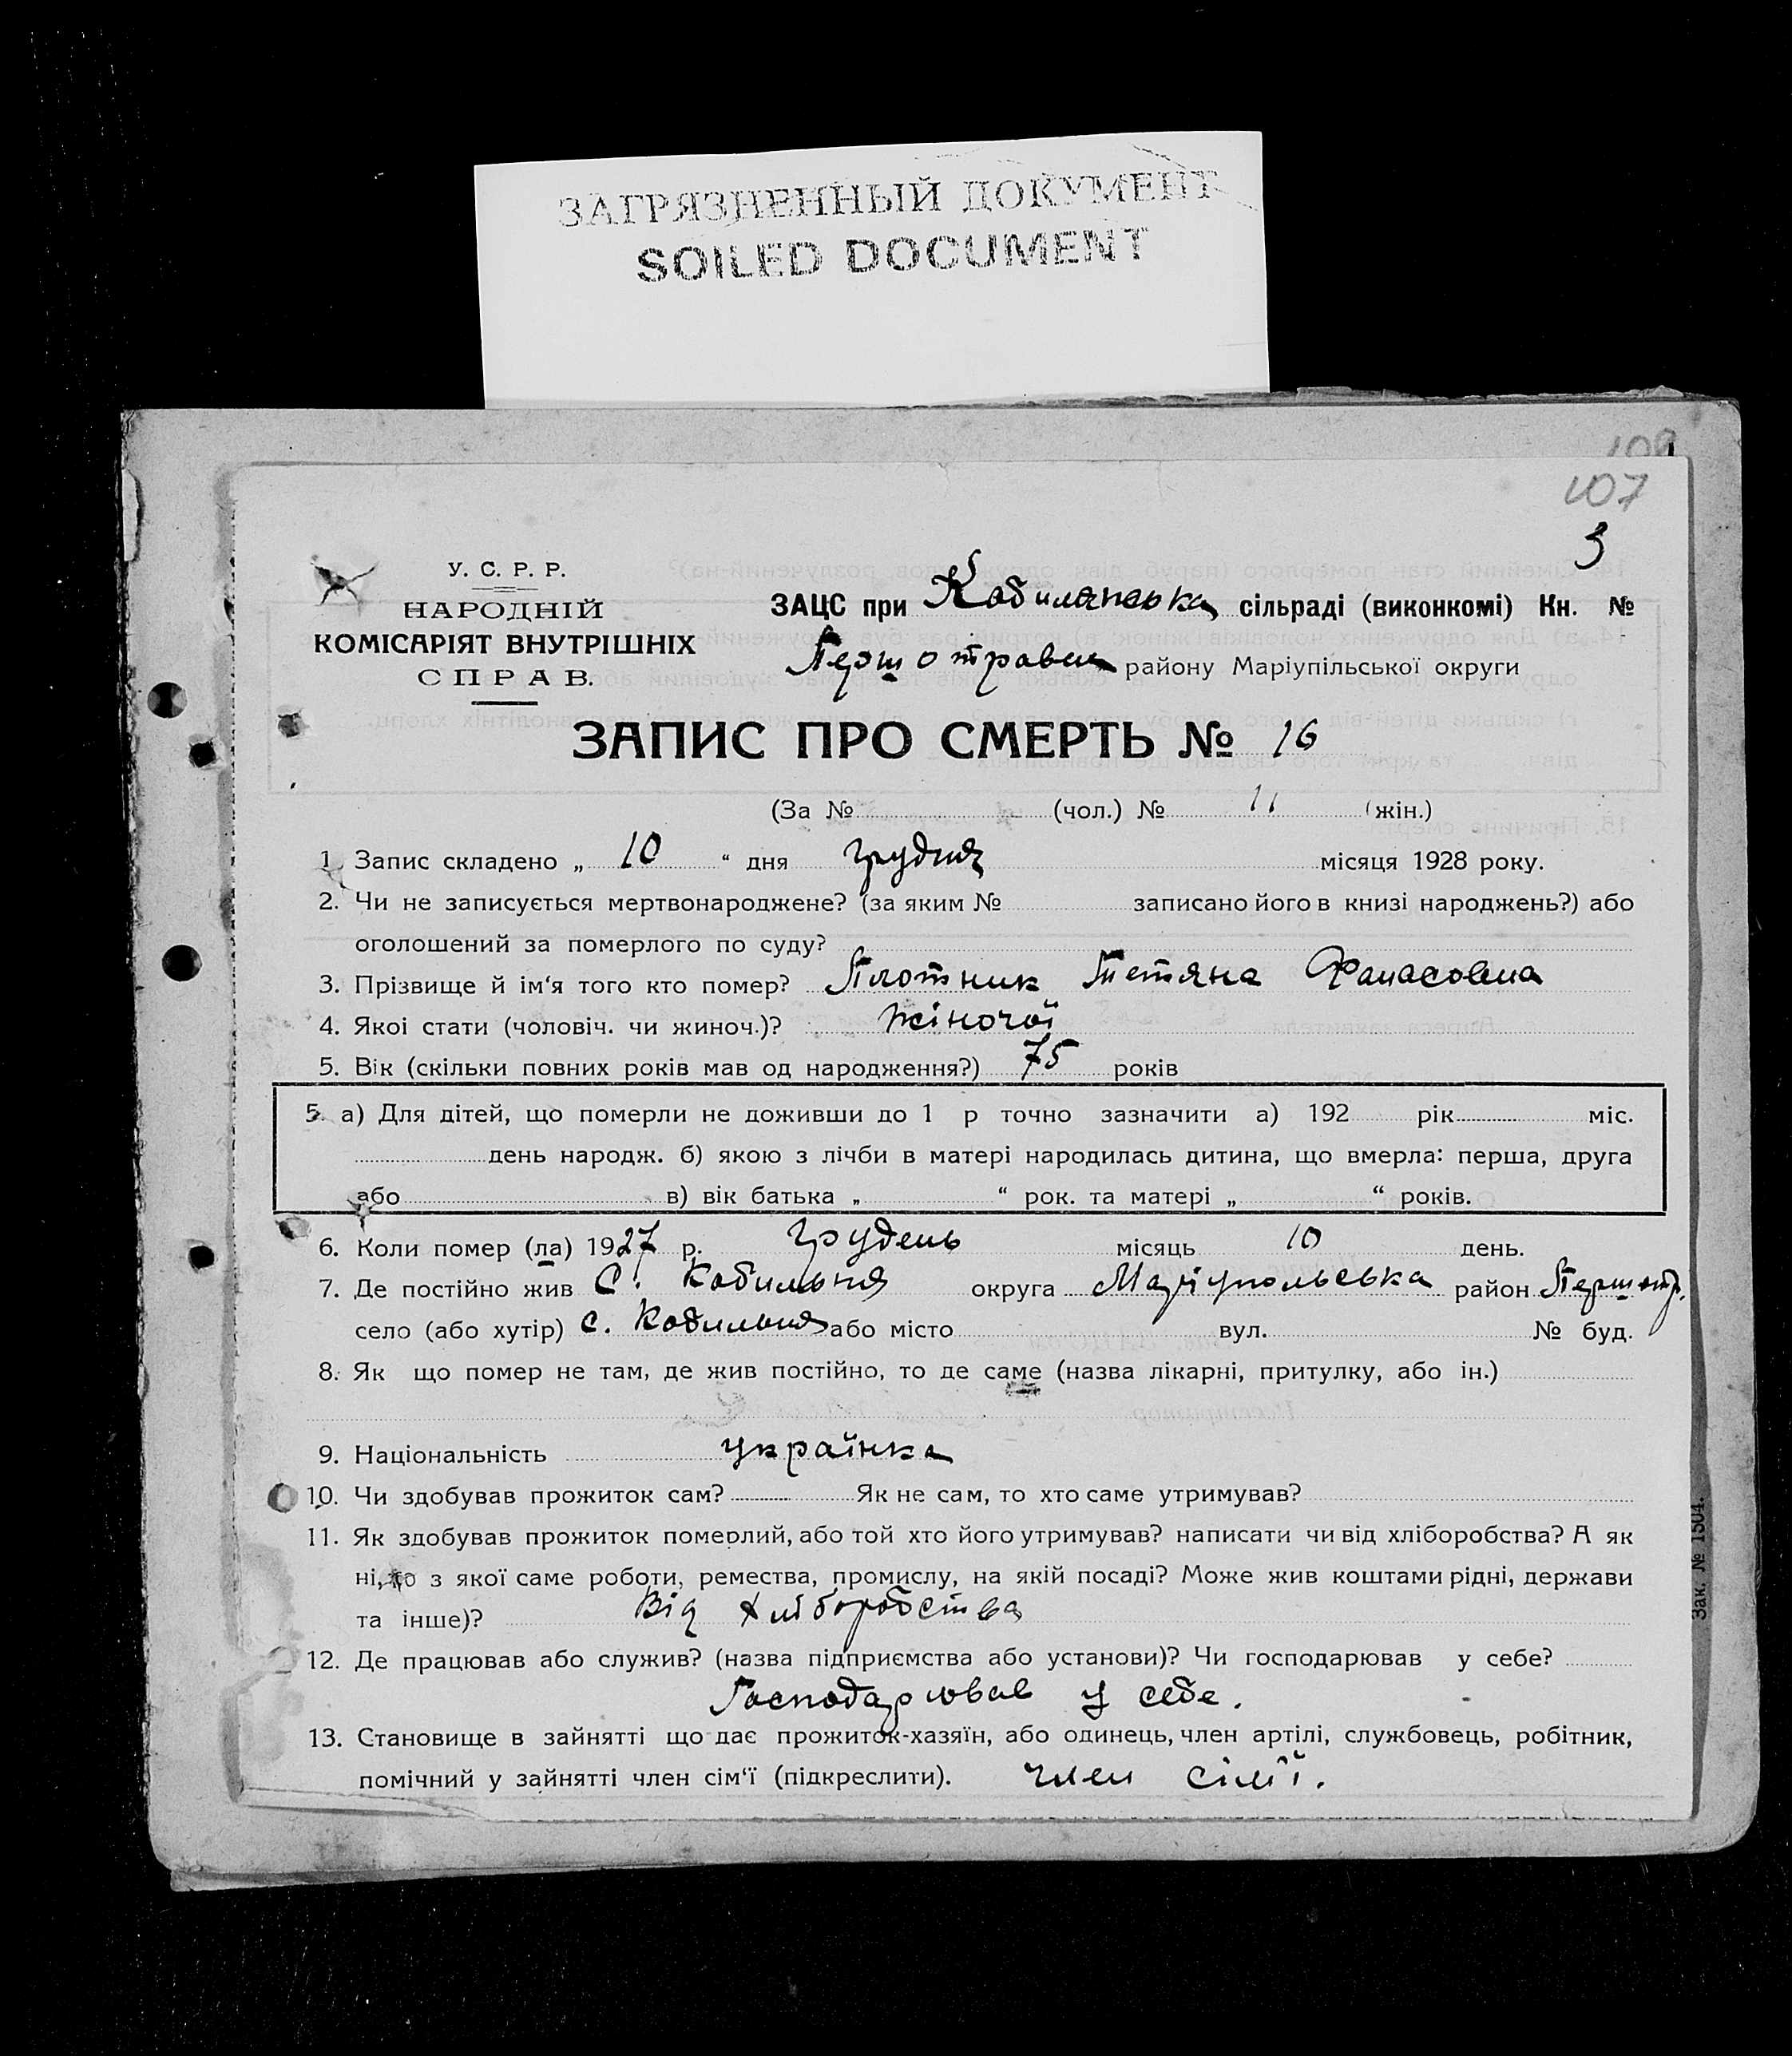 ЗАГРЯЗНЕННЫЙ ДОКУМЕНТ
SOILED DOCUMENT
109
107
3
У. С. Р. Р.
НАРОДНІЙ
КОМІСАРІЯТ ВНУТРІШНІХ
СПРАВ.
ЗАЦС при Кобилянська сільраді (виконкомі) Кн. №
Першотравен району Маріупільської округи
ЗАПИС ПРО СМЕРТЬ № 16
(За № (чол.) № 11 (жін.)
1. Запис складено „ 10 “ дня грудня місяця 1928 року.
2. Чи не записується мертвонароджене? (за яким № записано його в книзі народжень?) або
оголошений за померлого по суду?
3. Прізвище й ім‘я того кто помер? Плотник Тетяна Фанасовна
4. Якоі стати (чоловіч. чи жиноч.)? жіночої
5. Вік (скільки повних років мав од народження?) 75 років
5. а) Для дітей, що померли не доживши до 1 р точно зазначити а) 192 рік міс.
день народж. б) якою з лічби в матері народилась дитина, що вмерла: перша, друга
або в) вік батька „ “ рок. та матері „ “ років.
6. Коли помер (ла) 1927 р. грудень місяць 10 день.
7. Де постійно жив С. Кобильня округа Маріупольська район Першотр.
село (або хутір) с. Кобильня або місто вул. № буд.
8. Як що помер не там, де жив постійно, то де саме (назва лікарні, притулку, або ін.)
9. Національність українка
10. Чи здобував прожиток сам? Як не сам, то хто саме утримував?
11. Як здобував прожиток померлий, або той хто його утримував? написати чи від хліборобства? А як
ні, то з якої саме роботи, ремества, промислу, на якій посаді? Може жив коштами рідні, держави
та інше)? Від хліборобства
12. Де працював або служив? (назва підприємства або установи)? Чи господарював у себе?
Господарював у себе.
13. Становище в зайнятті що дає прожиток-хазяїн, або одинець, член артілі, службовець, робітник,
помічний у зайнятті член сім‘ї (підкреслити). член сімї.
Зак. № 1504.